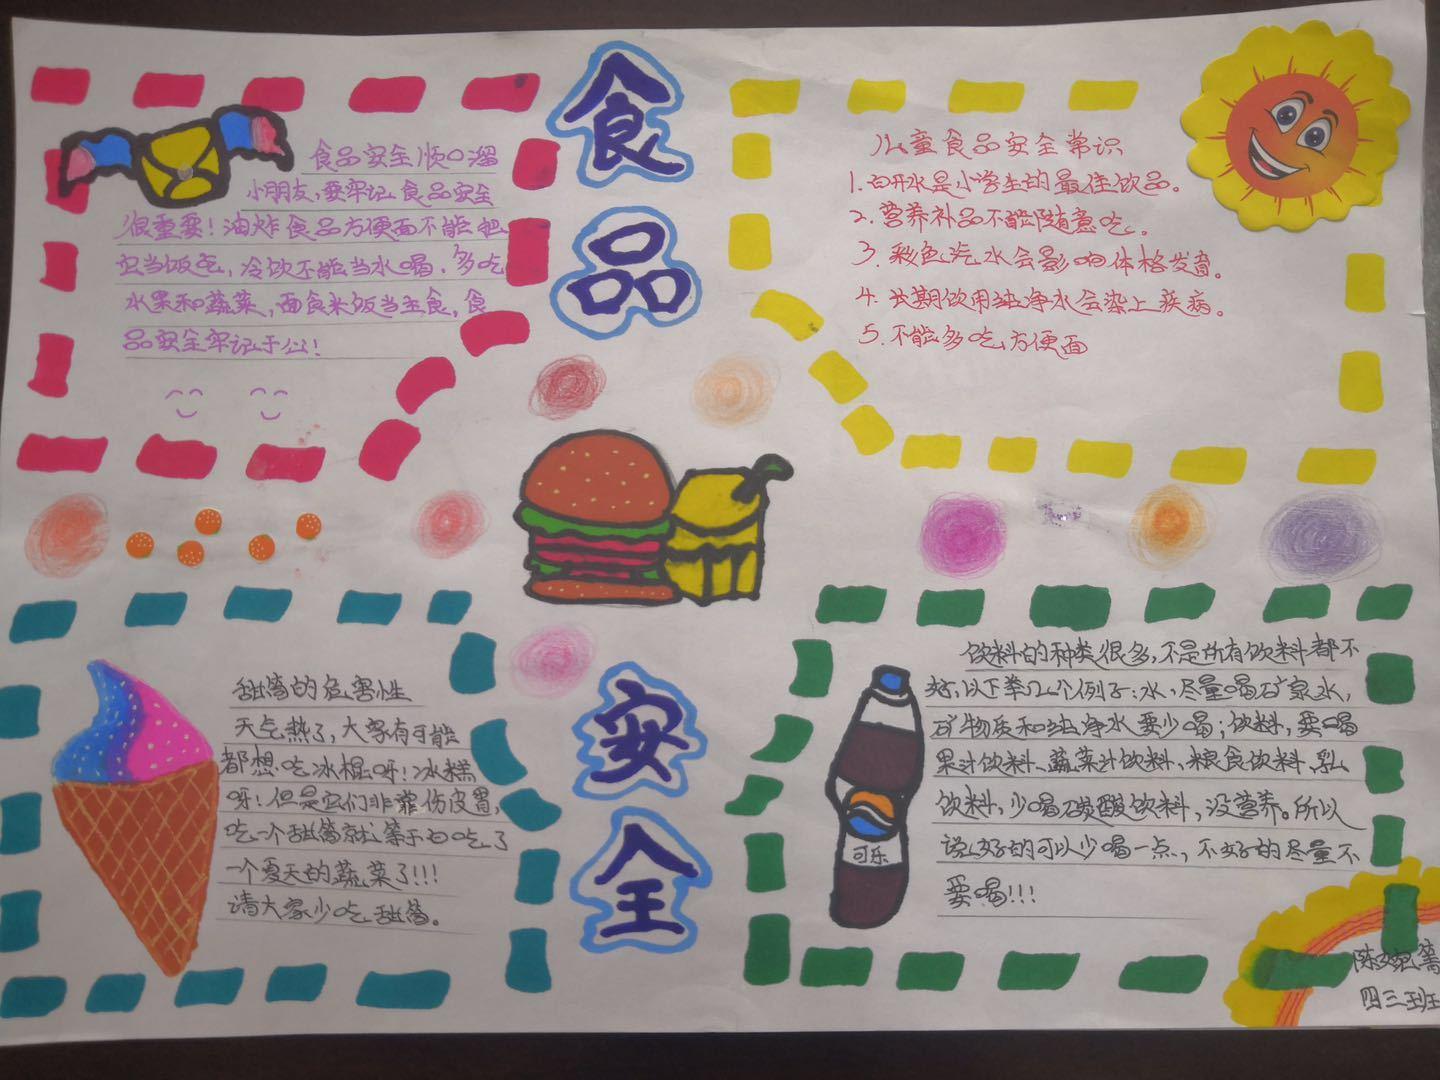 食品
安全
食品安全顺口溜
小朋友，要牢记，食品安全
很重要！油炸食品方便面不能把
它当饭吃，冷饮不能当水喝．多吃
水果和蔬菜，面食米饭当主食，食
品安全牢记于心！
儿童食品安全常识
1.白开水是小学生的最佳饮品。
2.营养补品不能随意吃。
3.彩色汽水会影响体格发育。
4.长期饮用纯净水会染上疾病。
5.不能多吃方便面
甜筒的危害性
天气热了，大家有可能
都想吃冰棍呀！冰糕
呀！但是它们非常伤皮胃，
吃一个甜筒就等于白吃了
一个夏天的蔬菜了!!!
请大家少吃甜筒。
饮料的种类很多，不是所有饮料都不
好，以下举几个例子：水，尽量喝矿泉水，
矿物质和纯净水要少喝；饮料，要喝
果汁饮料、蔬菜汁饮料，粮食饮料，乳
饮料，少喝碳酸饮料，没营养。所以
说，好的可以少喝一点，不好的尽量不
要喝!!!
可乐
陈婉
四三班